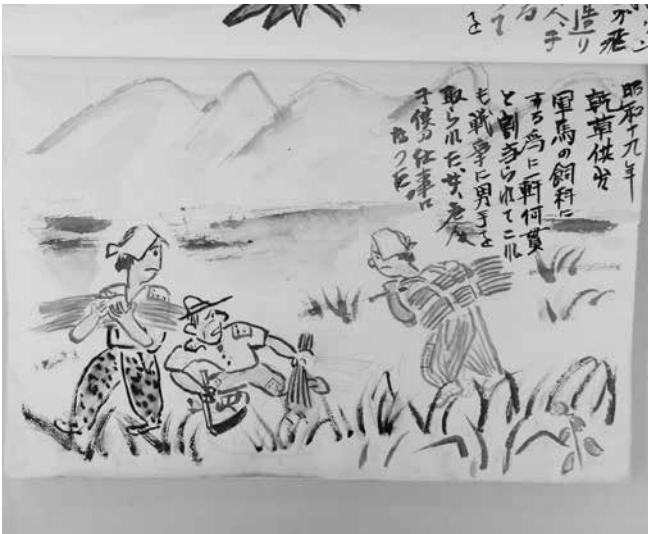 が飛
造り
人子
る
て
を
昭和十九年
乾草供出
軍馬の飼料に
する為に一軒何貫
と割当られてこれ
も戦争に男手を
取られた女、老人
子供の仕事に
なった。